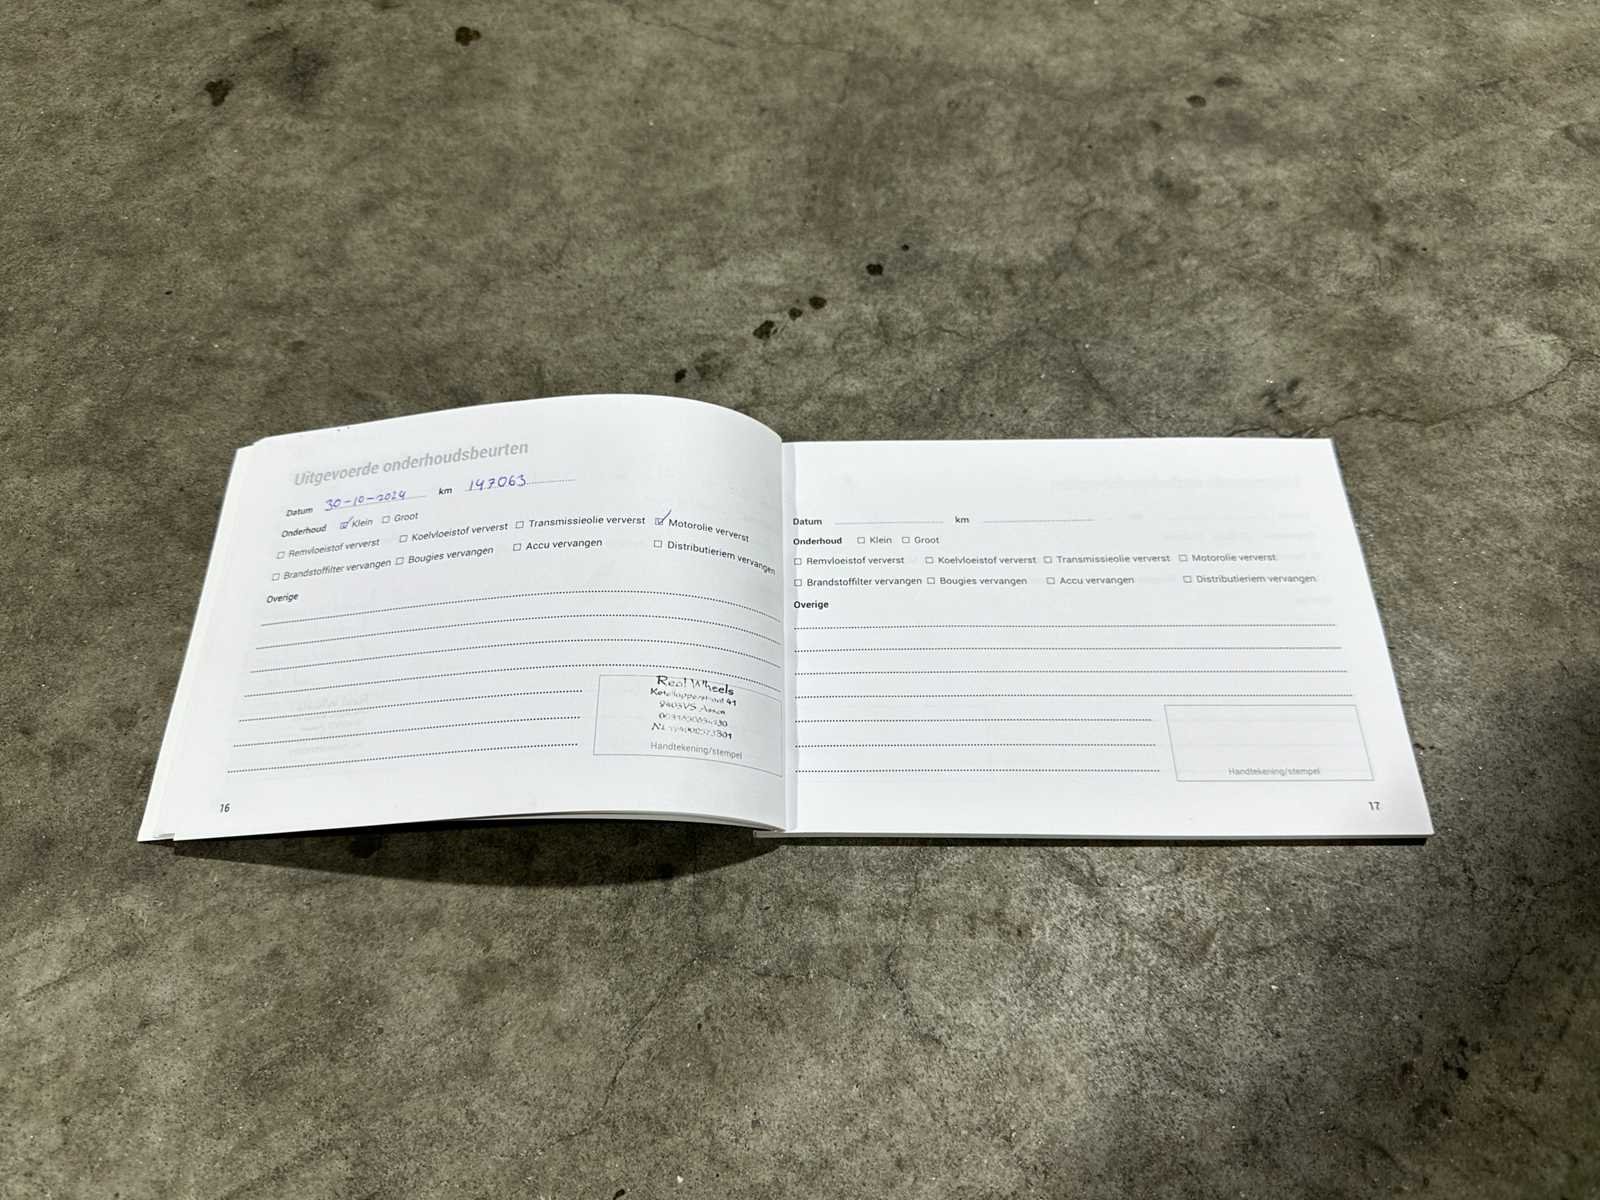 Uitgevoerde onderhoudsbeurten
Datum 30-10-2024 km 147063
Onderhoud Klein Groot
Remvloeistof ververst Koelvloeistof ververst Transmissieolie ververst Motorolie ververst
Brandstoffilter vervangen Bougies vervangen Accu vervangen Distributieriem vervangen
Overige
Real Wheels
41
9403VS Assen
Handtekening/stempel
16
Datum km
Onderhoud Klein Groot
Remvloeistof ververst Koelvloeistof ververst Transmissieolie ververst Motorolie ververst
Brandstoffilter vervangen Bougies vervangen Accu vervangen Distributieriem vervangen
Overige
Handtekening/stempel
17